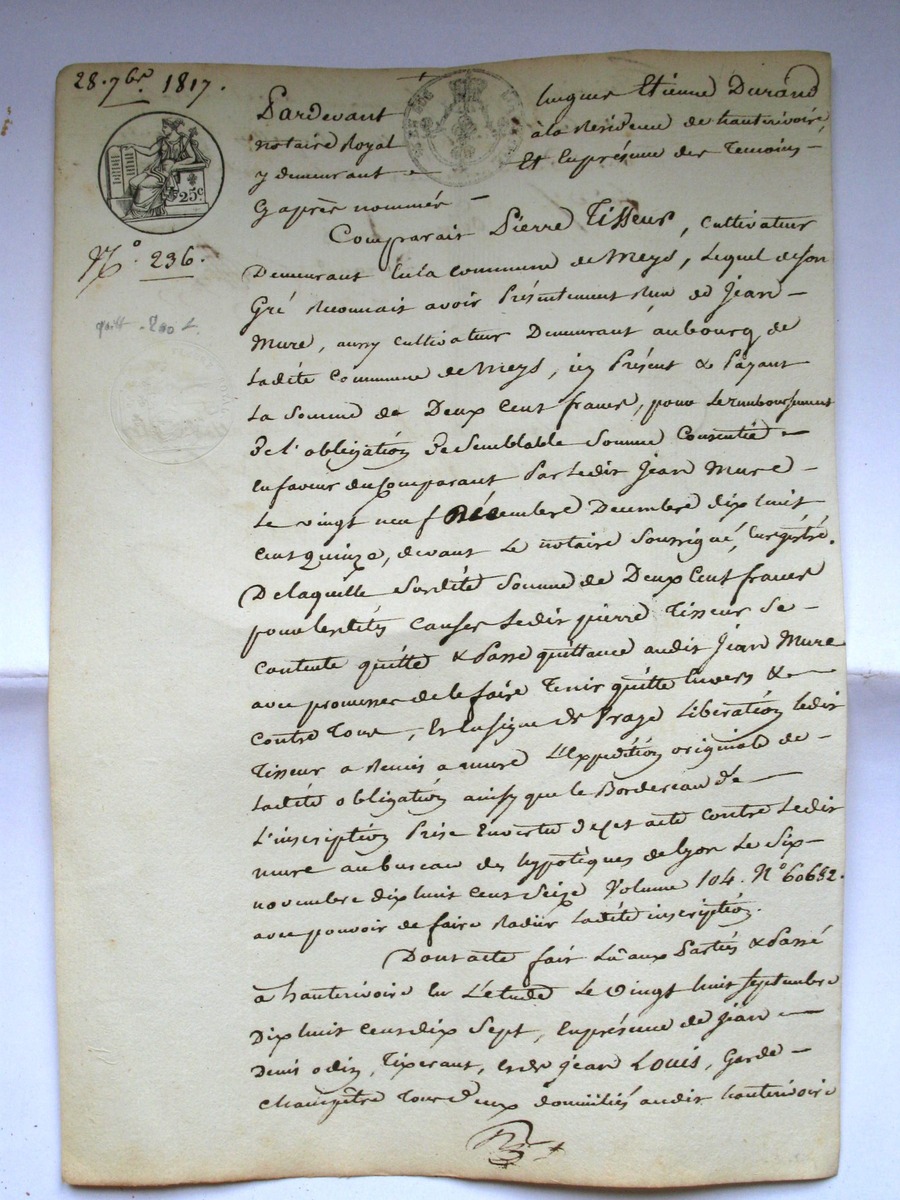 28. 7bre 1817.
25c
N.° 236.
quitt. 200 L.
Pardevant hugues Etienne Durand
notaire Royal à la Résidence de hauterivoire,
y demeurant Et En présence des Temoins
Cy après nommés
Comparait Pierre Tisseur, Cultivateur
Demeurant En la commune de Meys, Lequel de son
Gré Reconnait avoir Présentement Reçu de Jean
Mure, aussy Cultivateur Demeurant au bourg de
Ladite Commune de Meys, icy Présent & Payant
La Somme de Deux Cent francs, pour Le remboursement
De L'obligation De Semblable Somme Consentie
En faveur du Comparant Par Ledit Jean Mure
Le vingt neuf Decembre dix huit
Cent quinze, devant Le notaire Soussigné, Enregistré.
De laquelle Susdite Somme de Deux Cent francs
pour Lesdites Causes Ledit pierre Tisseur Se
Contente quitte & Passe quittance audit Jean Mure
avec promesse de le faire Tenir quitte Envers &
Contre Tous, Et En signe de Libération Ledit
Tisseur a Remis a mure L'Expédition originale de
Ladite obligation ainsy que le Bordereau de
L'inscription Prise En vertu de cet acte contre Ledit
mure au bureau des hypotèques de lyon Le Six
novembre dix huit Cent Seize Volume 104. N° 60632.
avec pouvoir de faire Radier Ladite inscription.
Dont acte fait Lû aux Parties & Passé
à hauterivoire En L'etude Le Vingt huit Septembre
Dix huit Cent dix Sept, En présence de Jean
Denis odin, Tixerant, et de Jean Louis, Garde
Champêtre Tous Deux domiciliés audit hauterivoire